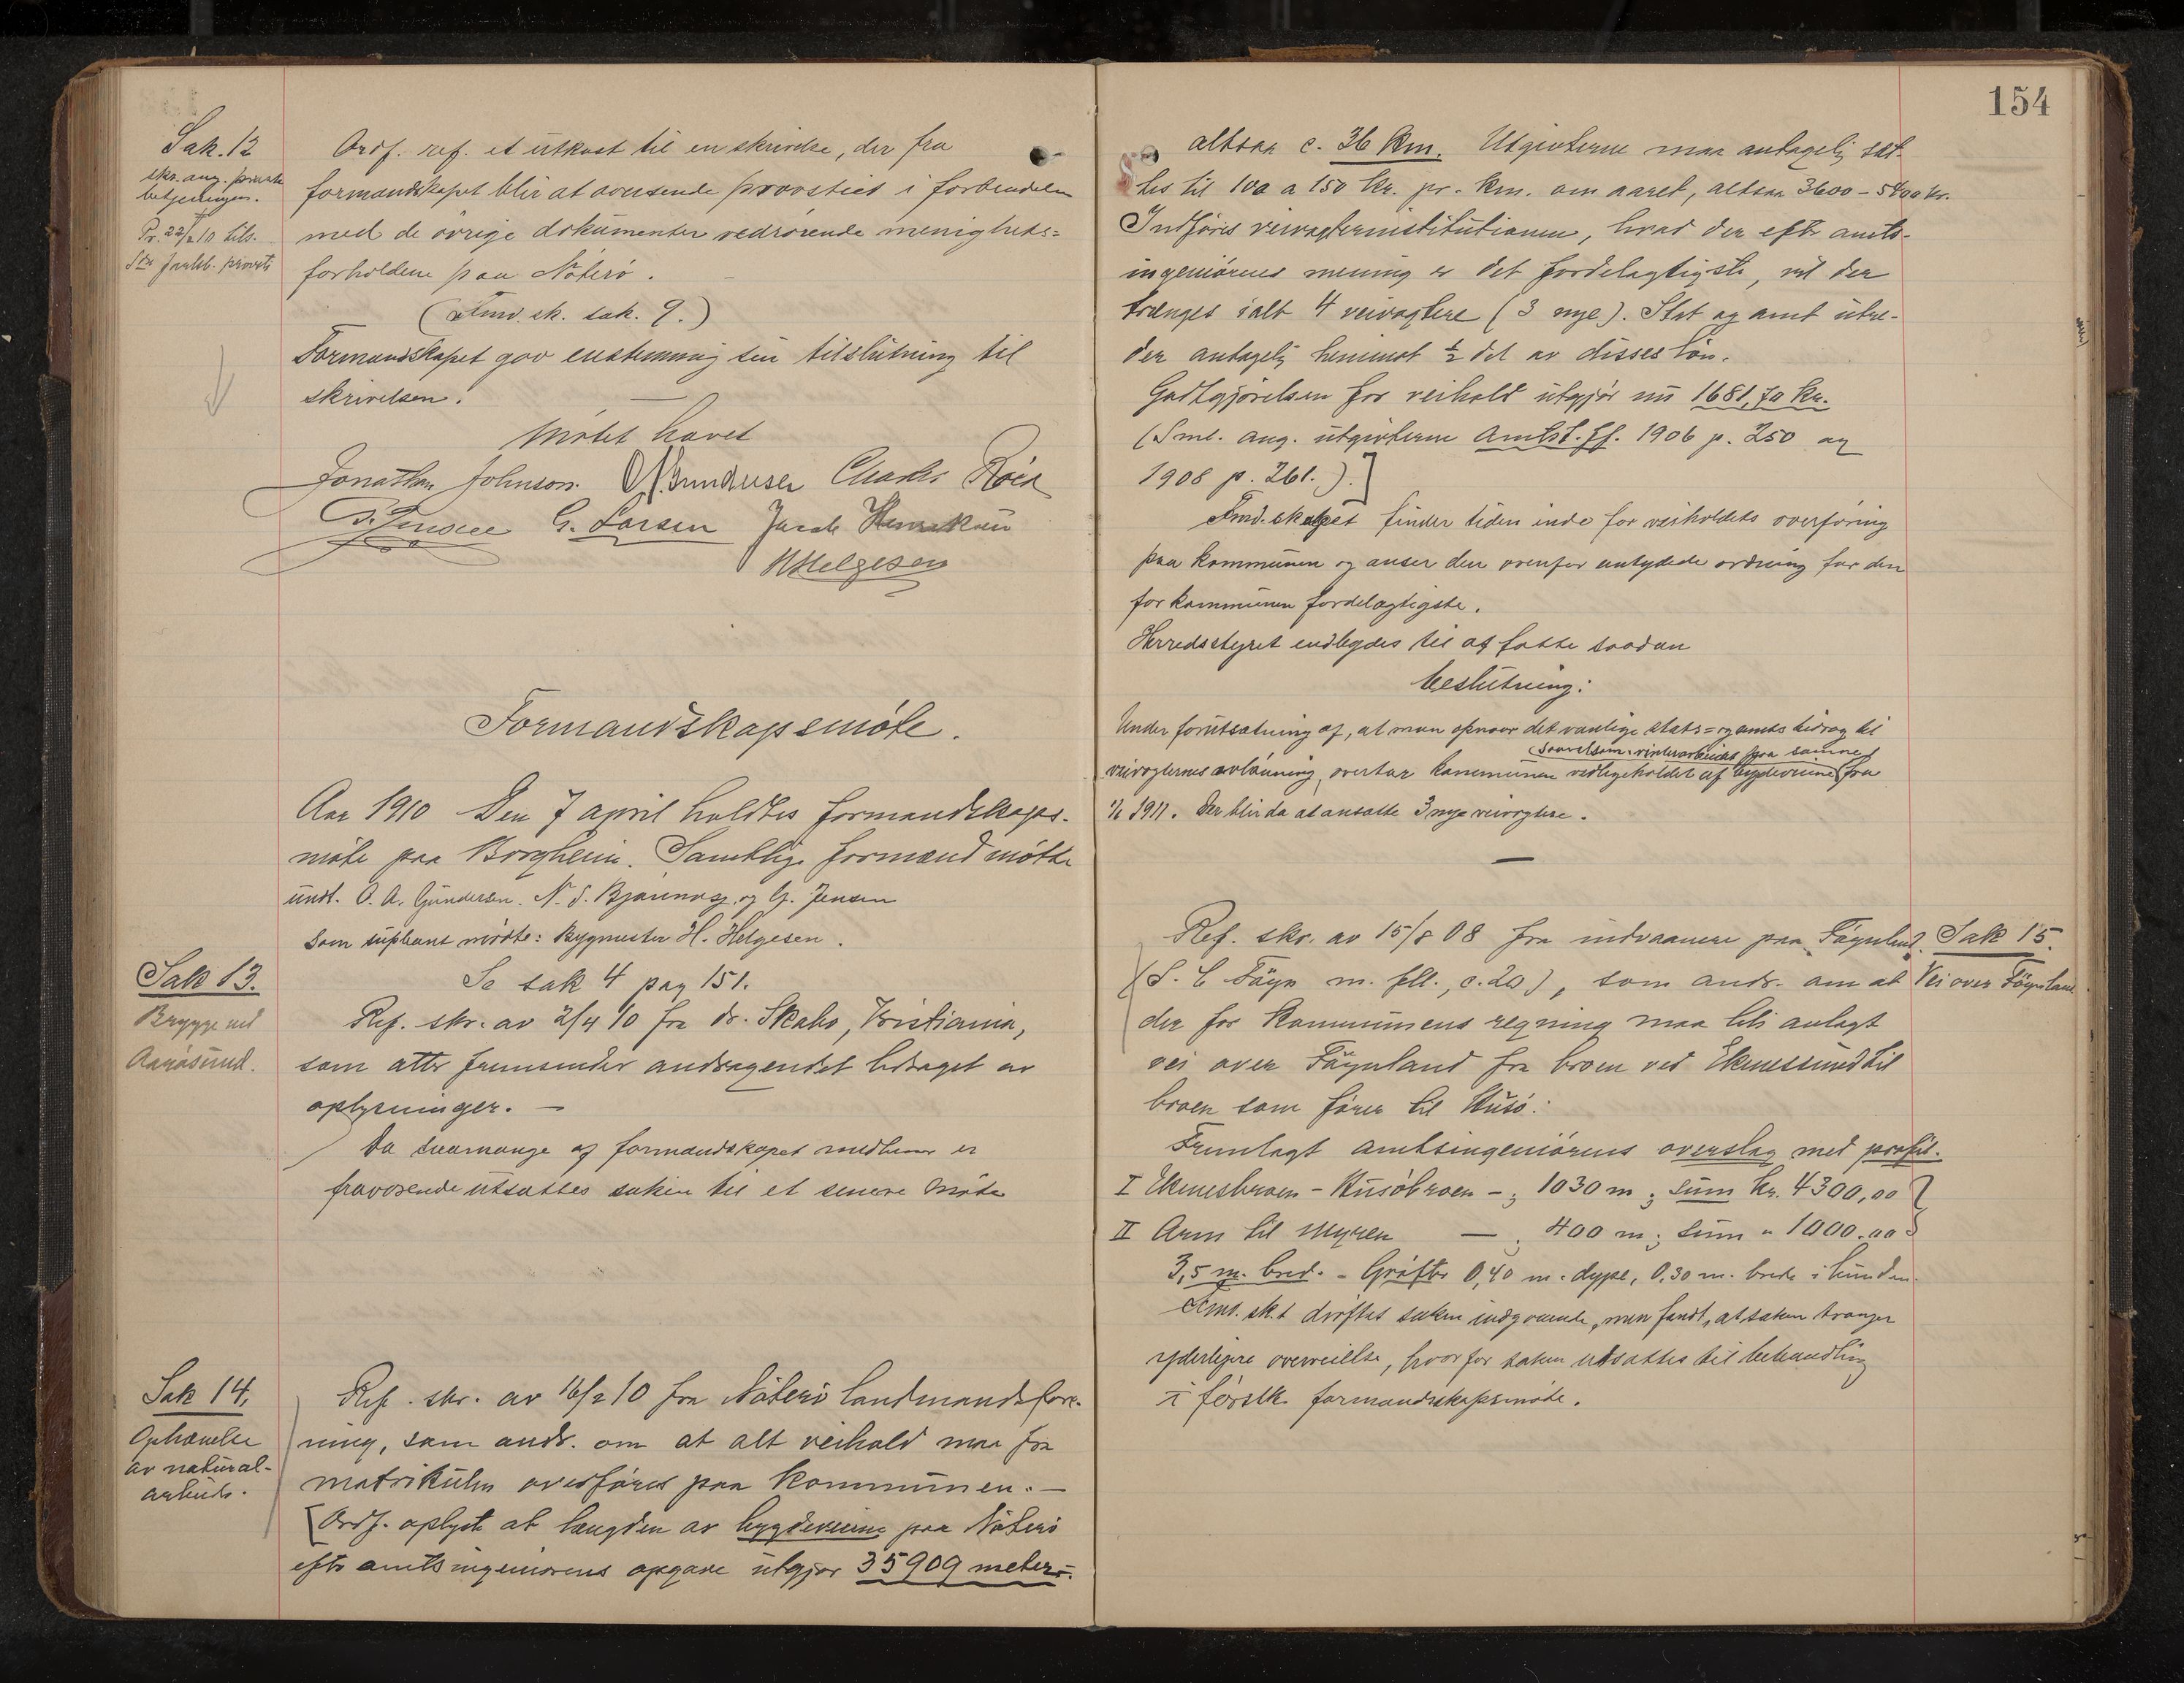 Sak. 12
skr. ang. prestebetjeningen.
Pr. 22/2 10 tils.
Ordf. ref. et utkast til en skrivelse, der fra
formandskapet blir at oversende provstiet i forbindelse
med de övrige dokumenter vedrörende menighets=
forholdene paa Nöterö.
(Fmd. sk. sak. 9.)
Formandskapet gav enstemmig sin tilslutning til
skrivelsen.
Mötet hævet
Jonathan Johnson. O. A. Gundersen Charles Röed
G. Jensen G. Larsen Jacob Henriksen
H Helgesen
Formandskapsmöte.
Aar 1910 Den 7 april holdtes formandskaps-
möte paa Borgheim. Samtlige formænd mötte
undt. O. A. Gundersen. N. S. Bjönness og G. Jensen
Som supleant mödte: Bygmester H. Helgesen.
Sak 13.
Brygge ved
Aaröesund.
Se sak 4 pag 151.
Ref. skr. av 2/4 10 fra dr. Skabo, Kristiania,
som atter fremsender andragendet ledsaget av
oplysninger. —
Da saamange af formandskapet medlemer er
fraværende utsattes saken til et senere möte
Sak 14.
Ophævelse
av natural-
arbeide.
Ref. skr. av 16/2 10 fra Nöterö landmandsfore-
ning, som andr. om at alt veihold maa fra
matrikulen overföres paa kommunen. —
[Ordf. oplyste at længden av bygdeveiene paa Nöterö
efter amtsingeniörens opgave utgjör 35909 meter.
154
altsaa c. 36 km. Utgivterne maa antagelig sæt-
tes til 100 a 150 kr. pr. km. om aaret, altsaa 3600 - 5400 kr.
Indföres veivogterinstitutionen, hvad der efter amts-
ingeniörens mening er det fordelagtigste, vil der
trænges ialt 4 veivogtere (3 nye). Stat og amt utre-
der antagelig henimot 1/2 del av disses lön.
Godtgjörelsen for veihold utgjör nu 1681,70 kr.
(Sml. ang. utgivterne Amtst. ff. 1906 p. 250 og
1908 p. 261.).]
Fmd. skapet finder tiden inde for veiholdets overföring
paa kommunen og anser den ovenfor antydede ordning for den
for kommunen fordelagtigste.
Herredsstyret indbydes til at fatte saadan
beslutning:
Under forutsætning af, at man opnaar det vanlige stats= og amts bidrag til
(saavelsom vinterarbeidet paa samme)
veivogternes avlönning, overtar kommunen vedligeholdet af bygdeveiene fra
1/1 1911. Der blir da at ansætte 3 nye veivogtere.
Sak 15.
Vei over Föynland.
Ref. skr. av 15/8 08 fra indvaanere paa Föynland
(S. C. Föyn m. fll., c. 20), som andr. om at
der for kommunens regning maa bli anlagt
vei over Föynland fra broen ved Ekenessund til
broen som förer til Husö.
Fremlagt amtsingeniörens overslag med profil.
I Ekenesbroen - Husöbroen - ; 1030 m ; sum kr. 4300,00
II Arm til Myren — ; 400 m ; sum " 1000.00
3,5 m. bred. - Gröfter 0,40 m. dype, 0.30 m. brede i bunden.
Fmd. sk.t dröftet saken indgaaende, men fandt, at saken trænger
yderligere overveielse, hvorfor saken utsattes til behandling
i förstk. formandskapsmöte.